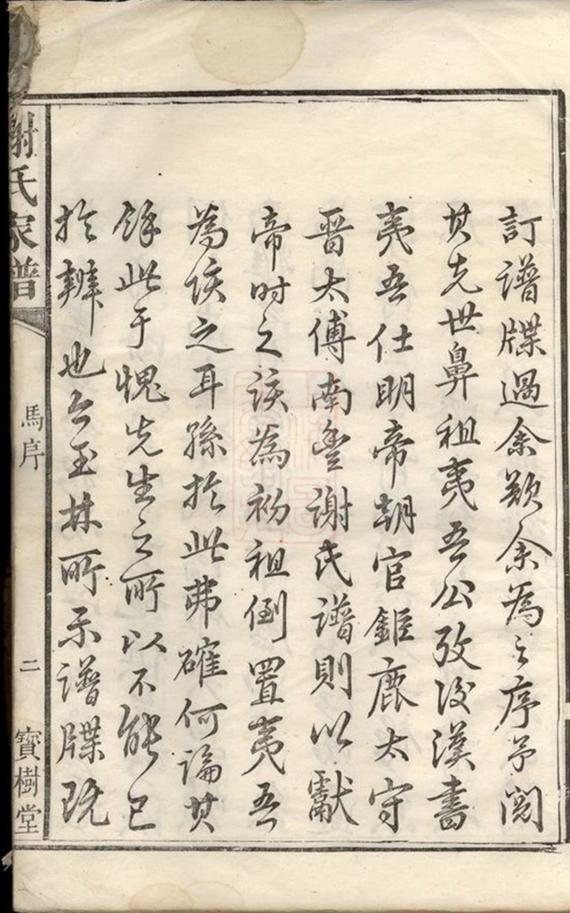 訂譜牒過余欵余為之序予閱
其先世鼻祖夷吾公攷後漢書
夷吾仕明帝朝官鉅鹿太守
晋太傅南豐謝氏譜則以獻
帝時之該為初祖倒置夷吾
為該之耳孫於此弗確何論其
餘此于愧先生之所以不能已
於辨也今玉林所示譜牒既
謝氏家譜
馬序
二
寶樹堂